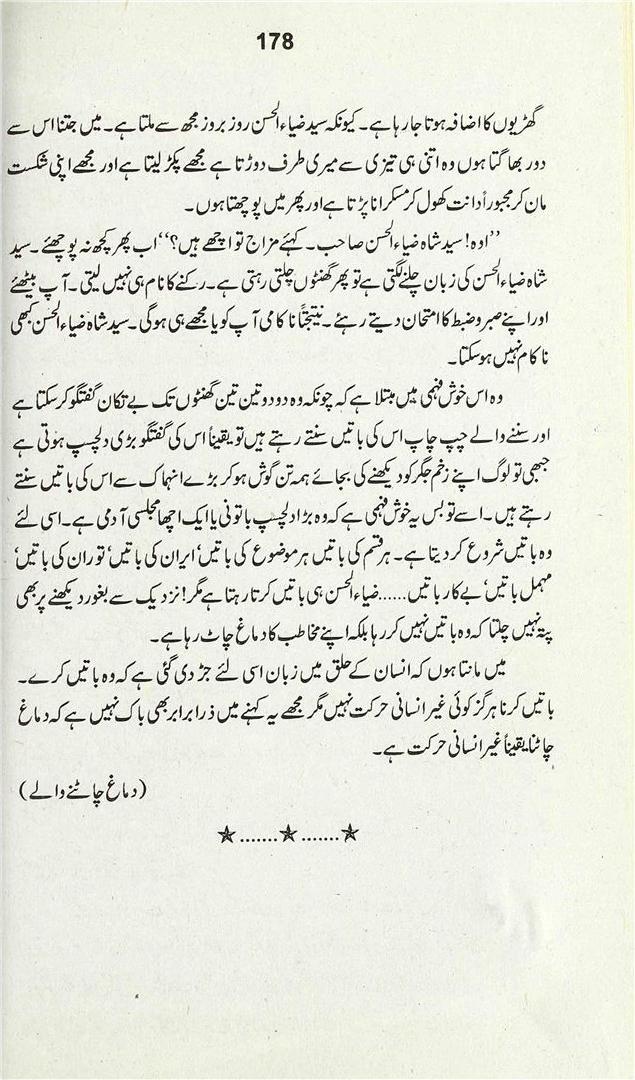 178
گھڑیوں کا اضافہ ہوتا جا رہا ہے۔ کیونکہ سید ضیاء الحسن روز بروز مجھ سے ملتا ہے۔ میں جتنا اس سے
دور بھاگتا ہوں وہ اتنی ہی تیزی سے میری طرف دوڑتا ہے مجھے پکڑ لیتا ہے اور مجھے اپنی شکست
مان کر مجبوراً دانت کھول کر مسکرانا پڑتا ہے اور پھر میں پوچھتا ہوں۔
’’اوہ! سید شاہ ضیاء الحسن صاحب۔ کہئے مزاج تو اچھے ہیں؟‘‘ اب پھر کچھ نہ پوچھئے۔ سید
شاہ ضیاء الحسن کی زبان چلنے لگتی ہے تو پھر گھنٹوں چلتی رہتی ہے۔ رکنے کا نام ہی نہیں لیتی۔ آپ بیٹھئے
اور اپنے صبر و ضبط کا امتحان دیتے رہئے۔ نتیجتاً ناکامی آپ کو یا مجھے ہی ہوگی۔ سید شاہ ضیاء الحسن کبھی
ناکام نہیں ہوسکتا۔
وہ اس خوش فہمی میں مبتلا ہے کہ چونکہ وہ دو دو تین تین گھنٹوں تک بے تکان گفتگو کر سکتا ہے
اور سننے والے چپ چاپ اس کی باتیں سنتے رہتے ہیں تو یقیناً اس کی گفتگو بڑی دلچسپ ہوتی ہے
جبھی تو لوگ اپنے زخم جگر کو دیکھنے کی بجائے ہمہ تن گوش ہوکر بڑے انہماک سے اس کی باتیں سنتے
رہتے ہیں۔ اسے تو بس یہ خوش فہمی ہے کہ وہ بڑا دلچسپ باتونی یا ایک اچھا مجلسی آدمی ہے۔ اسی لئے
وہ باتیں شروع کر دیتا ہے۔ ہر قسم کی باتیں ہر موضوع کی باتیں‘ ایران کی باتیں‘ توران کی باتیں‘
مہمل باتیں‘ بے کار باتیں......ضیاء الحسن ہی باتیں کرتا رہتا ہے مگر! نزدیک سے بغور دیکھنے پر بھی
پتہ نہیں چلتا کہ وہ باتیں نہیں کر رہا بلکہ اپنے مخاطب کا دماغ چاٹ رہا ہے۔
میں مانتا ہوں کہ انسان کے حلق میں زبان اسی لئے جڑ دی گئی ہے کہ وہ باتیں کرے۔
باتیں کرنا ہرگز کوئی غیر انسانی حرکت نہیں مگر مجھے یہ کہنے میں ذرا برابر بھی باک نہیں ہے کہ دماغ
چاٹنا یقیناً غیر انسانی حرکت ہے۔
(دماغ چاٹنے والے)
★.......★.......★